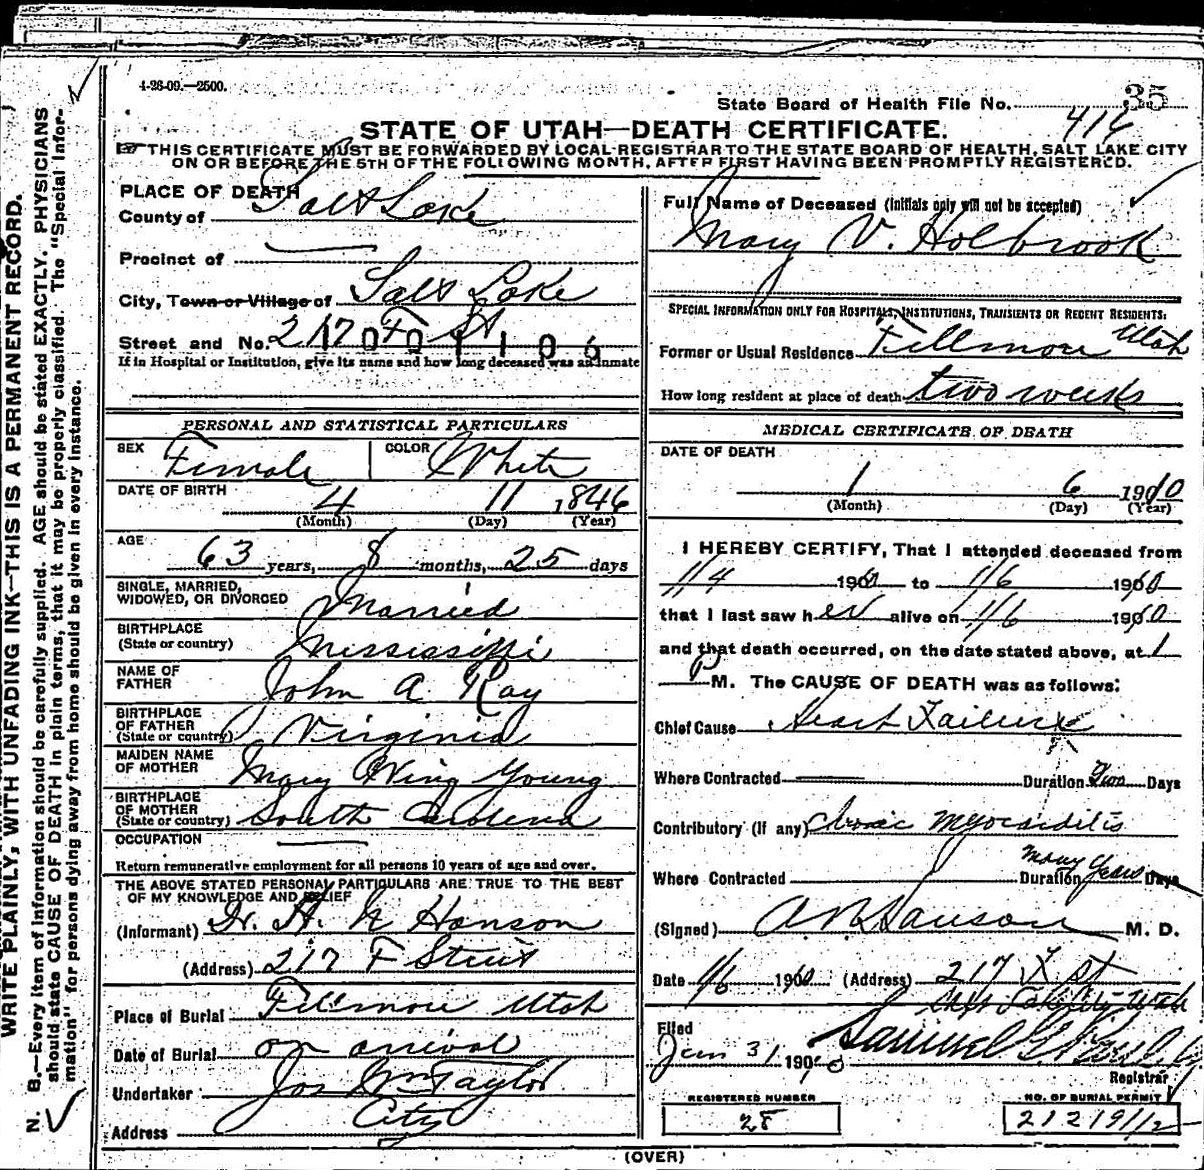 4-26-09.—2500.
State Board of Health File No. 35
416
STATE OF UTAH—DEATH CERTIFICATE.
THIS CERTIFICATE MUST BE FORWARDED BY LOCAL REGISTRAR TO THE STATE BOARD OF HEALTH, SALT LAKE CITY
ON OR BEFORE THE 5TH OF THE FOLLOWING MONTH, AFTER FIRST HAVING BEEN PROMPTLY REGISTERED.
WRITE PLAINLY, WITH UNFADING INK—THIS IS A PERMANENT RECORD.
N. B.—Every item of information should be carefully supplied. AGE should be stated EXACTLY. PHYSICIANS
should state CAUSE OF DEATH in plain terms, that it may be properly classified. The "Special Infor-
mation" for persons dying away from home should be given in every instance.
PLACE OF DEATH
County of Salt Lake
Precinct of
City, Town or Village of Salt Lake
Street and No. 217 F St
1001106
If in Hospital or Institution, give its name and how long deceased was an inmate
PERSONAL AND STATISTICAL PARTICULARS
SEX Female COLOR White
DATE OF BIRTH 4 11 1846
(Month) (Day) (Year)
AGE 63 years, 8 months, 25 days
SINGLE, MARRIED,
WIDOWED, OR DIVORCED Married
BIRTHPLACE
(State or country) Mississippi
NAME OF
FATHER John A Ray
BIRTHPLACE
OF FATHER
(State or country) Virginia
MAIDEN NAME
OF MOTHER Mary Wing Young
BIRTHPLACE
OF MOTHER
(State or country) South Carolina
OCCUPATION
Return remunerative employment for all persons 10 years of age and over.
THE ABOVE STATED PERSONAL PARTICULARS ARE TRUE TO THE BEST
OF MY KNOWLEDGE AND BELIEF
(Informant) Dr. H. N Hanson
(Address) 217 F Street
Place of Burial Fillmore Utah
Date of Burial on arrival
Undertaker Jos Wm Taylor
Address City
Full Name of Deceased (initials only will not be accepted)
Mary V. Holbrook
SPECIAL INFORMATION ONLY FOR HOSPITALS, INSTITUTIONS, TRANSIENTS OR RECENT RESIDENTS:
Former or Usual Residence Fillmore Utah
How long resident at place of death two weeks
MEDICAL CERTIFICATE OF DEATH
DATE OF DEATH
1 6 1910
(Month) (Day) (Year)
I HEREBY CERTIFY, That I attended deceased from
1/4 1910 to 1/6 1910
that I last saw her alive on 1/6 1910
and that death occurred, on the date stated above, at 1
P M. The CAUSE OF DEATH was as follows:
Chief Cause Heart Failure
Where Contracted Duration Two Days
Contributory (if any) Chronic Myocarditis
Where Contracted Duration many years Days
(Signed) M. D.
Date 1/6 1910 (Address) 217 F St
Salt Lake City Utah
Filed
Jan 31 1910 Samuel G
Registrar
REGISTERED NUMBER
28
NO. OF BURIAL PERMIT
21291/2
(OVER)